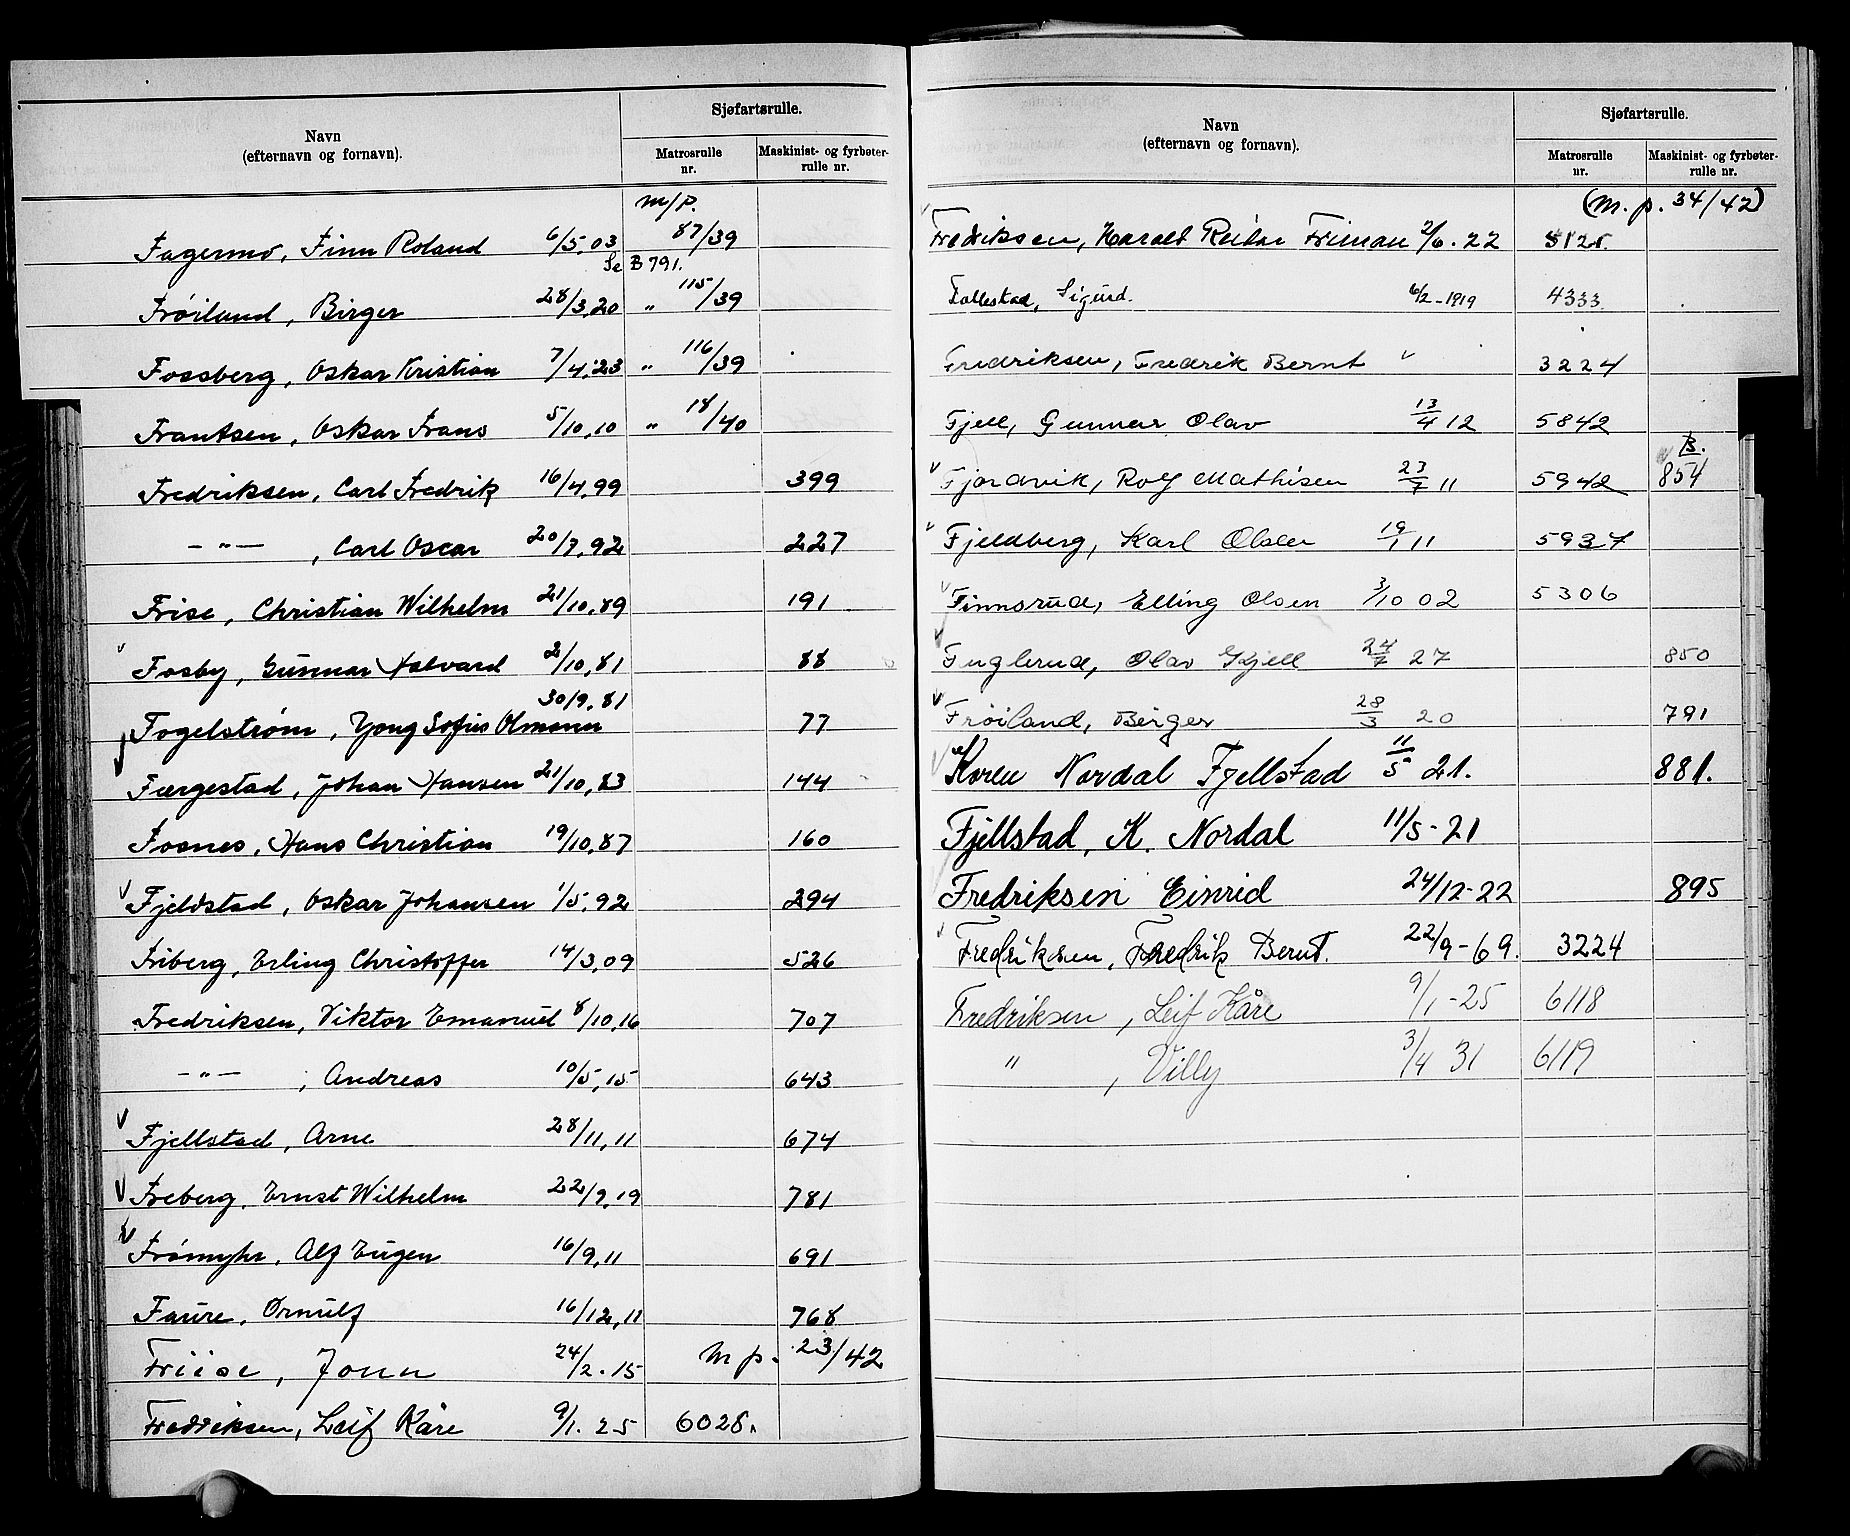 Navn
(efternavn og fornavn).
Sjøfartsrulle.
Matrosrulle nr.
Maskinist- og fyrbøter-rulle nr.
m/p.
Fagermo, Finn Roland 6/5.03 87/39
Se B 791.
Frøiland, Birger 28/3.20 „ 115/39
Fossberg, Oskar Kristian 7/4.23 „ 116/39
Frantsen, Oskar Frans 5/10.10 „ 18/40
Fredriksen, Carl Fredrik 16/4.99 399
—„— , Carl Oscar 20/7.92 227
Frise, Christian Wilhelm 21/10.89 191
v Fosby, Gunnar Halvard 2/10.81 88
30/9.81
Fogelstrøm, Yong Sofus Olmann 77
Færgestad, Johan Hansen 21/10.83 144
Fosnes, Hans Christian 19/10.87 160
v Fjeldstad, Oskar Johansen 1/5.92 294
Friberg, Erling Christoffer 14/3.09 526
Fredriksen, Viktor Emanuel 8/10.16 707
—„— , Andreas 10/5.15 643
v Fjellstad, Arne 28/11.11 674
v Freberg, Ernst Wilhelm 22/9.19 781
v Frømyhr, Alf Eugen 16/9.11 691
Faure, Ørnulf 16/12.11 768
Friise, John 24/2.15 m p. 23/42
Fredriksen, Leif Kåre 9/1.25 6028.
Navn
(efternavn og fornavn).
Sjøfartsrulle.
Matrosrulle nr.
Maskinist- og fyrbøter-rulle nr.
(m.p. 34/42)
v Fredriksen, Harald Reidar Friman 2/6.22 5125.
Follestad, Sigurd. 6/2-1919 4333.
Fredriksen, Fredrik Bernt v 3224
Fjell, Gunnar Olav 13/4 12 5842
B.
v Fjordvik, Rolf Mathisen 23/7 11 5942 854
v Fjeldberg, Karl Olsen 19/1 11 5937
v Finnsrud, Elling Olsen 3/10 02 5306
v Fuglerud, Olav Kjell 24/7 27 850
v Frøiland, Birger 28/3 20 791
v Koren Nordal Fjellstad 11/5 21. 881.
Fjellstad, K. Nordal 11/5-21
Fredriksen Einrid 24/12-22 895
v Fredriksen, Fredrik Bernt. 22/9-69. 3224
Fredriksen, Leif Kåre 9/1-25 6118
" , Villy 3/4 31 6119